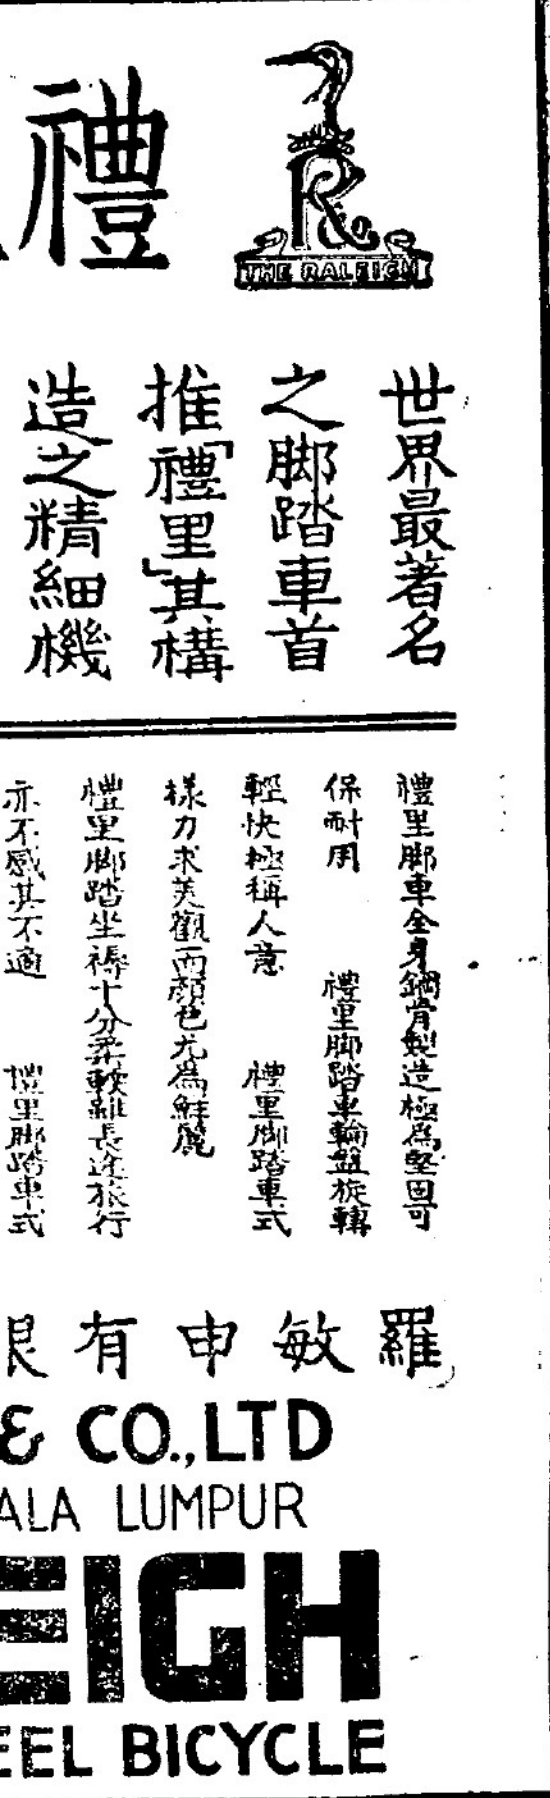 禮
R
Co
THE RALEIGH
世界最著名
之脚踏車首
推「禮里」其構
造之精細機
禮里脚車全身鋼骨製造極為堅固可
保耐用 禮里脚踏車輪盤旋轉
輕快極稱人意 禮里脚踏車式
樣力求美觀而顏色尤為鮮麗
禮里脚踏坐褥十分柔軟雖長途旅行
亦不感其不適 禮里脚踏車式
羅敏申有限
& CO., LTD
ALA LUMPUR
EIGH
EEL BICYCLE